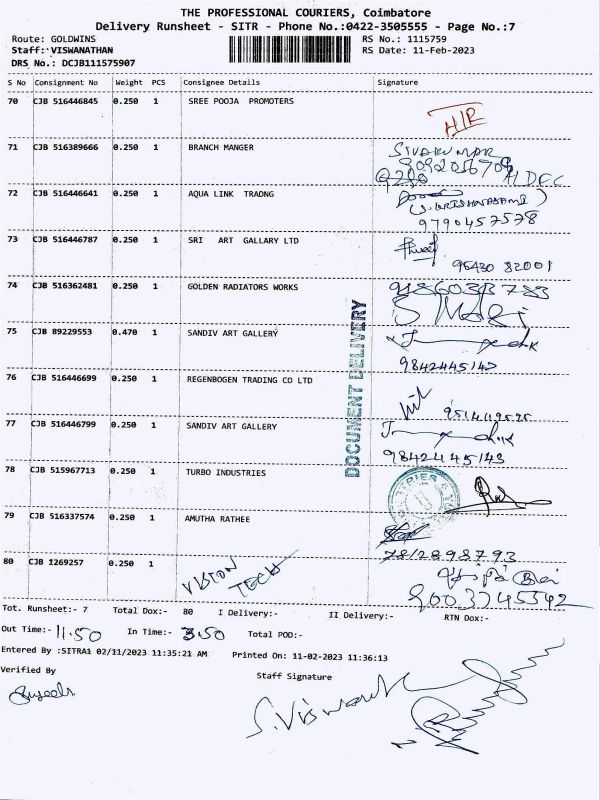 THE PROFESSIONAL COURIERS, Coimbatore
Delivery Runsheet - SITR - Phone No.:0422-3505555 - Page No.:7
Route: GOLDWINS RS No.: 1115759
Staff: VISWANATHAN RS Date: 11-Feb-2023
DRS No.: DCJB111575907
S No Consignment No Weight PCS Consignee Details Signature
70 CJB 516446845 0.250 1 SREE POOJA PROMOTERS
71 CJB 516389666 0.250 1 BRANCH MANGER SIVAKUMAR
HDFC
72 CJB 516446641 0.250 1 AQUA LINK TRADNG
9790457578
73 CJB 516446787 0.250 1 SRI ART GALLARY LTD
95430 82001
74 CJB 516362481 0.250 1 GOLDEN RADIATORS WORKS
S MARI
75 CJB 89229553 0.470 1 SANDIV ART GALLERY
9842445143
76 CJB 516446699 0.250 1 REGENBOGEN TRADING CO LTD
77 CJB 516446799 0.250 1 SANDIV ART GALLERY
9842445143
78 CJB 515967713 0.250 1 TURBO INDUSTRIES
79 CJB 516337574 0.250 1 AMUTHA RATHEE
7812898793
80 CJB 1269257 0.250 1 VISION TECH
9003745342
DOCUMENT DELIVERY
Tot. Runsheet:- 7 Total Dox:- 80 I Delivery:- II Delivery:- RTN Dox:-
Out Time:- 11.50 In Time:- 3.50 Total POD:-
Entered By :SITRA1 02/11/2023 11:35:21 AM Printed On: 11-02-2023 11:36:13
Verified By Staff Signature
S. Viswanath